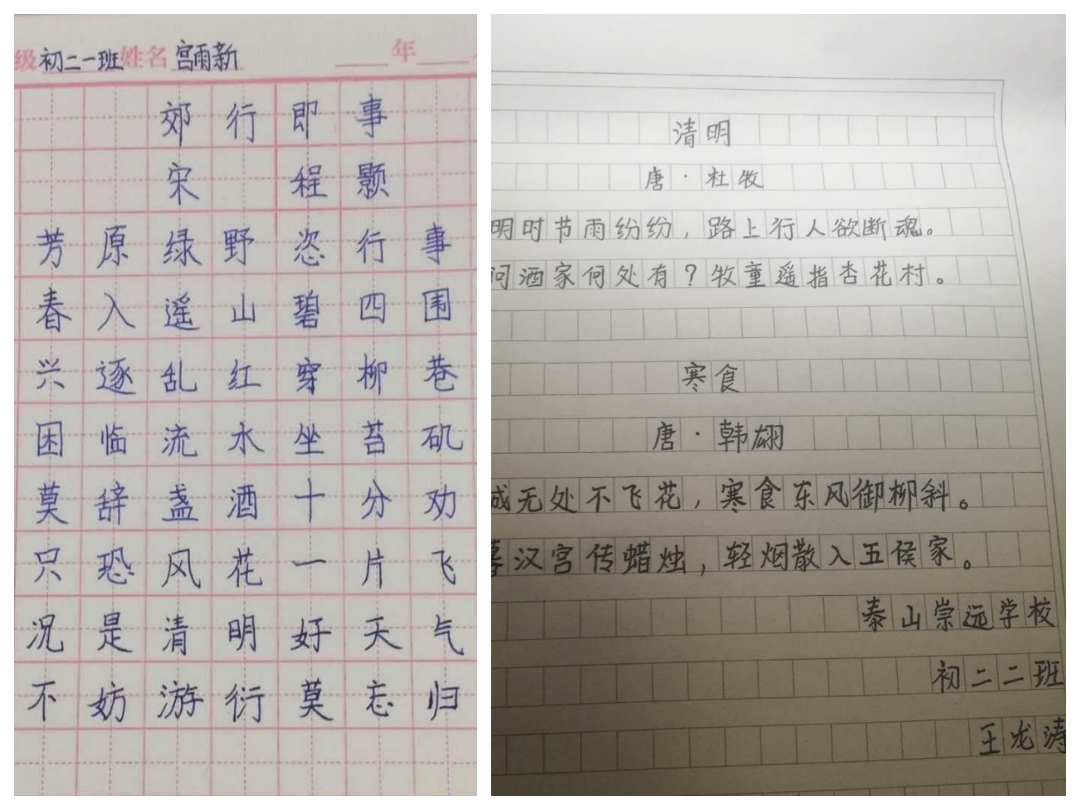 级 初二一班 姓名 宫雨新 年
郊行即事
宋 程颢
芳原绿野恣行事
春入遥山碧四围
兴逐乱红穿柳巷
困临流水坐苔矶
莫辞盏酒十分劝
只恐风花一片飞
况是清明好天气
不妨游衍莫忘归
清明
唐·杜牧
明时节雨纷纷，路上行人欲断魂。
问酒家何处有？牧童遥指杏花村。
寒食
唐·韩翃
城无处不飞花，寒食东风御柳斜。
暮汉宫传蜡烛，轻烟散入五侯家。
泰山崇远学校
初二二班
王龙涛